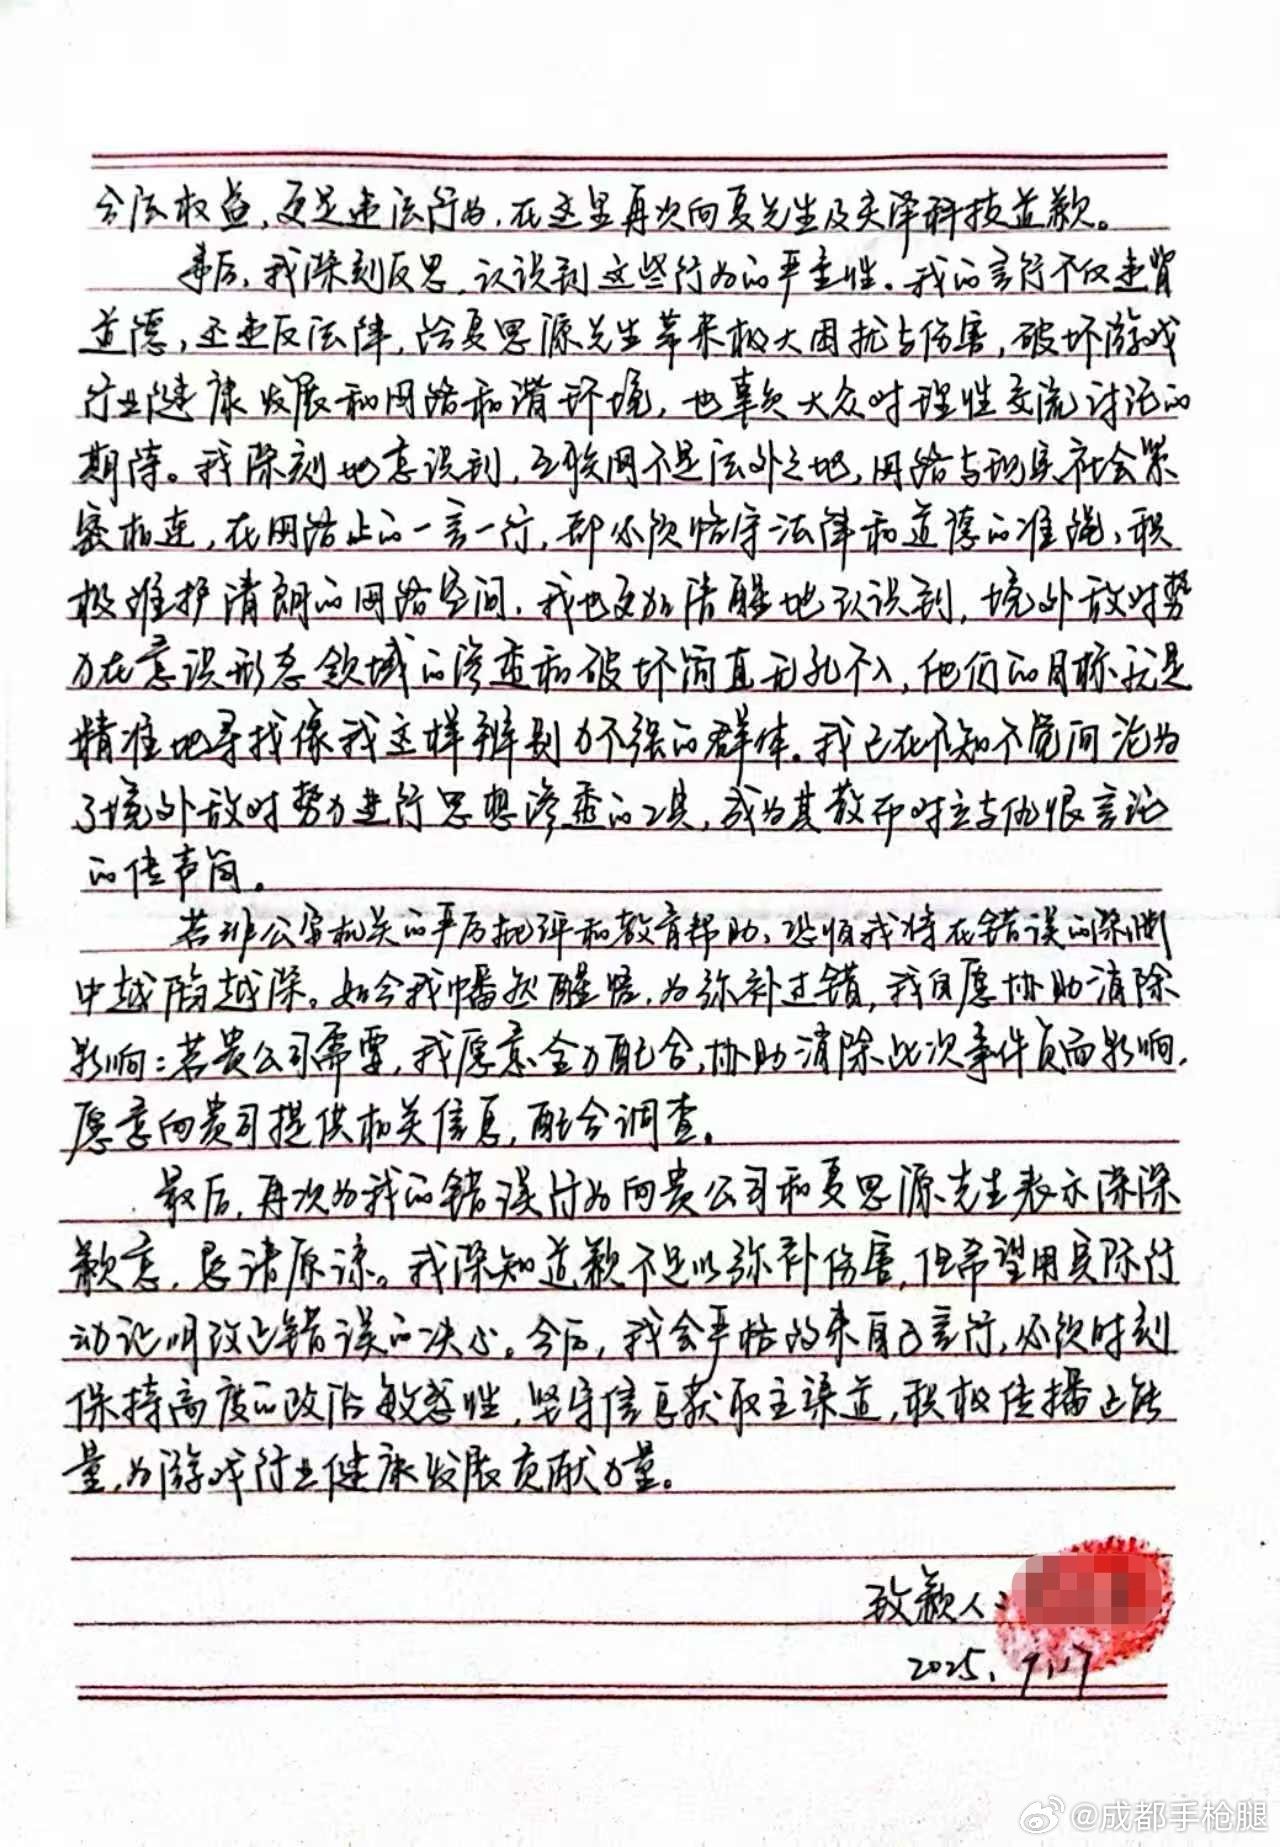 合法权益，更是违法行为，在这里再次向夏先生及灵泽科技道歉。
事后，我深刻反思，认识到这些行为的严重性。我的言行不仅违背
道德，还违反法律，给夏思源先生带来极大困扰与伤害，破坏游戏
行业健康发展和网络和谐环境，也辜负大众对理性交流讨论的
期待。我深刻地意识到，互联网不是法外之地，网络与现实社会紧
密相连，在网络上的一言一行，都必须恪守法律和道德的准绳，积
极维护清朗的网络空间，我也更加清醒地认识到，境外敌对势
力在意识形态领域的渗透和破坏简直无孔不入，他们的目标就是
精准地寻找像我这样辨别力不强的群体。我已在不知不觉间沦为
了境外敌对势力进行思想渗透的工具，成为其散布对立与仇恨言论
的传声筒。
若非公安机关的严厉批评和教育帮助，恐怕我将在错误的深渊
中越陷越深。如今我幡然醒悟，为弥补过错，我自愿协助消除
影响：若贵公司需要，我愿意全力配合，协助消除此次事件负面影响，
愿意向贵司提供相关信息，配合调查。
最后，再次为我的错误行为向贵公司和夏思源先生表示深深
歉意，恳请原谅。我深知道歉不足以弥补伤害，但希望用实际行
动证明改正错误的决心。今后，我会严格约束自己言行，必须时刻
保持高度的政治敏感性，坚守信息获取主渠道，积极传播正能
量，为游戏行业健康发展贡献力量。
致歉人：
2025.9.17
@成都手枪腿